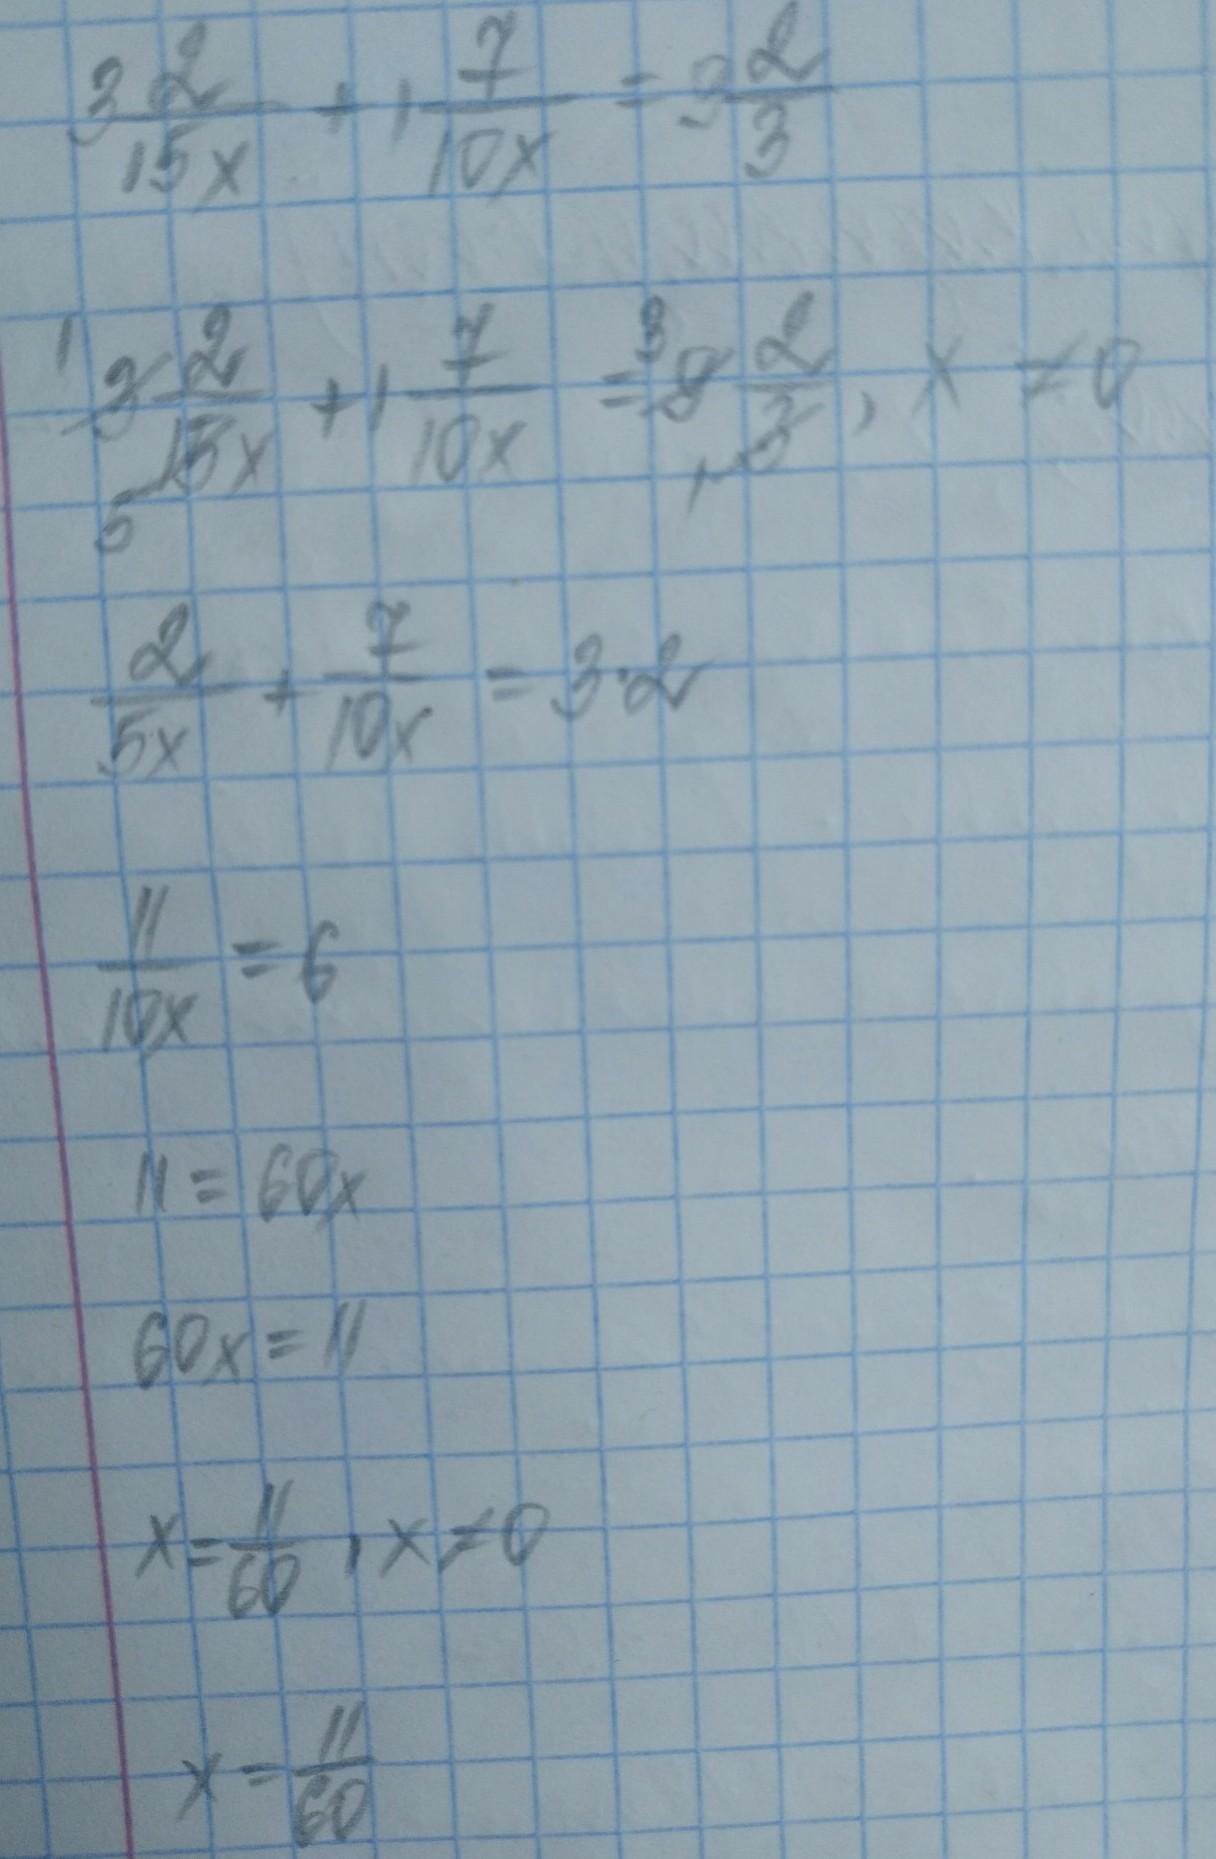 3 2/15x + 1 7/10x = 9 2/3
1 3 2/15x 5 + 1 7/10x = 3 9 2/3 1, x ≠ 0
2/5x + 7/10x = 3·2
11/10x = 6
11 = 60x
60x = 11
x = 11/60, x ≠ 0
x = 11/60